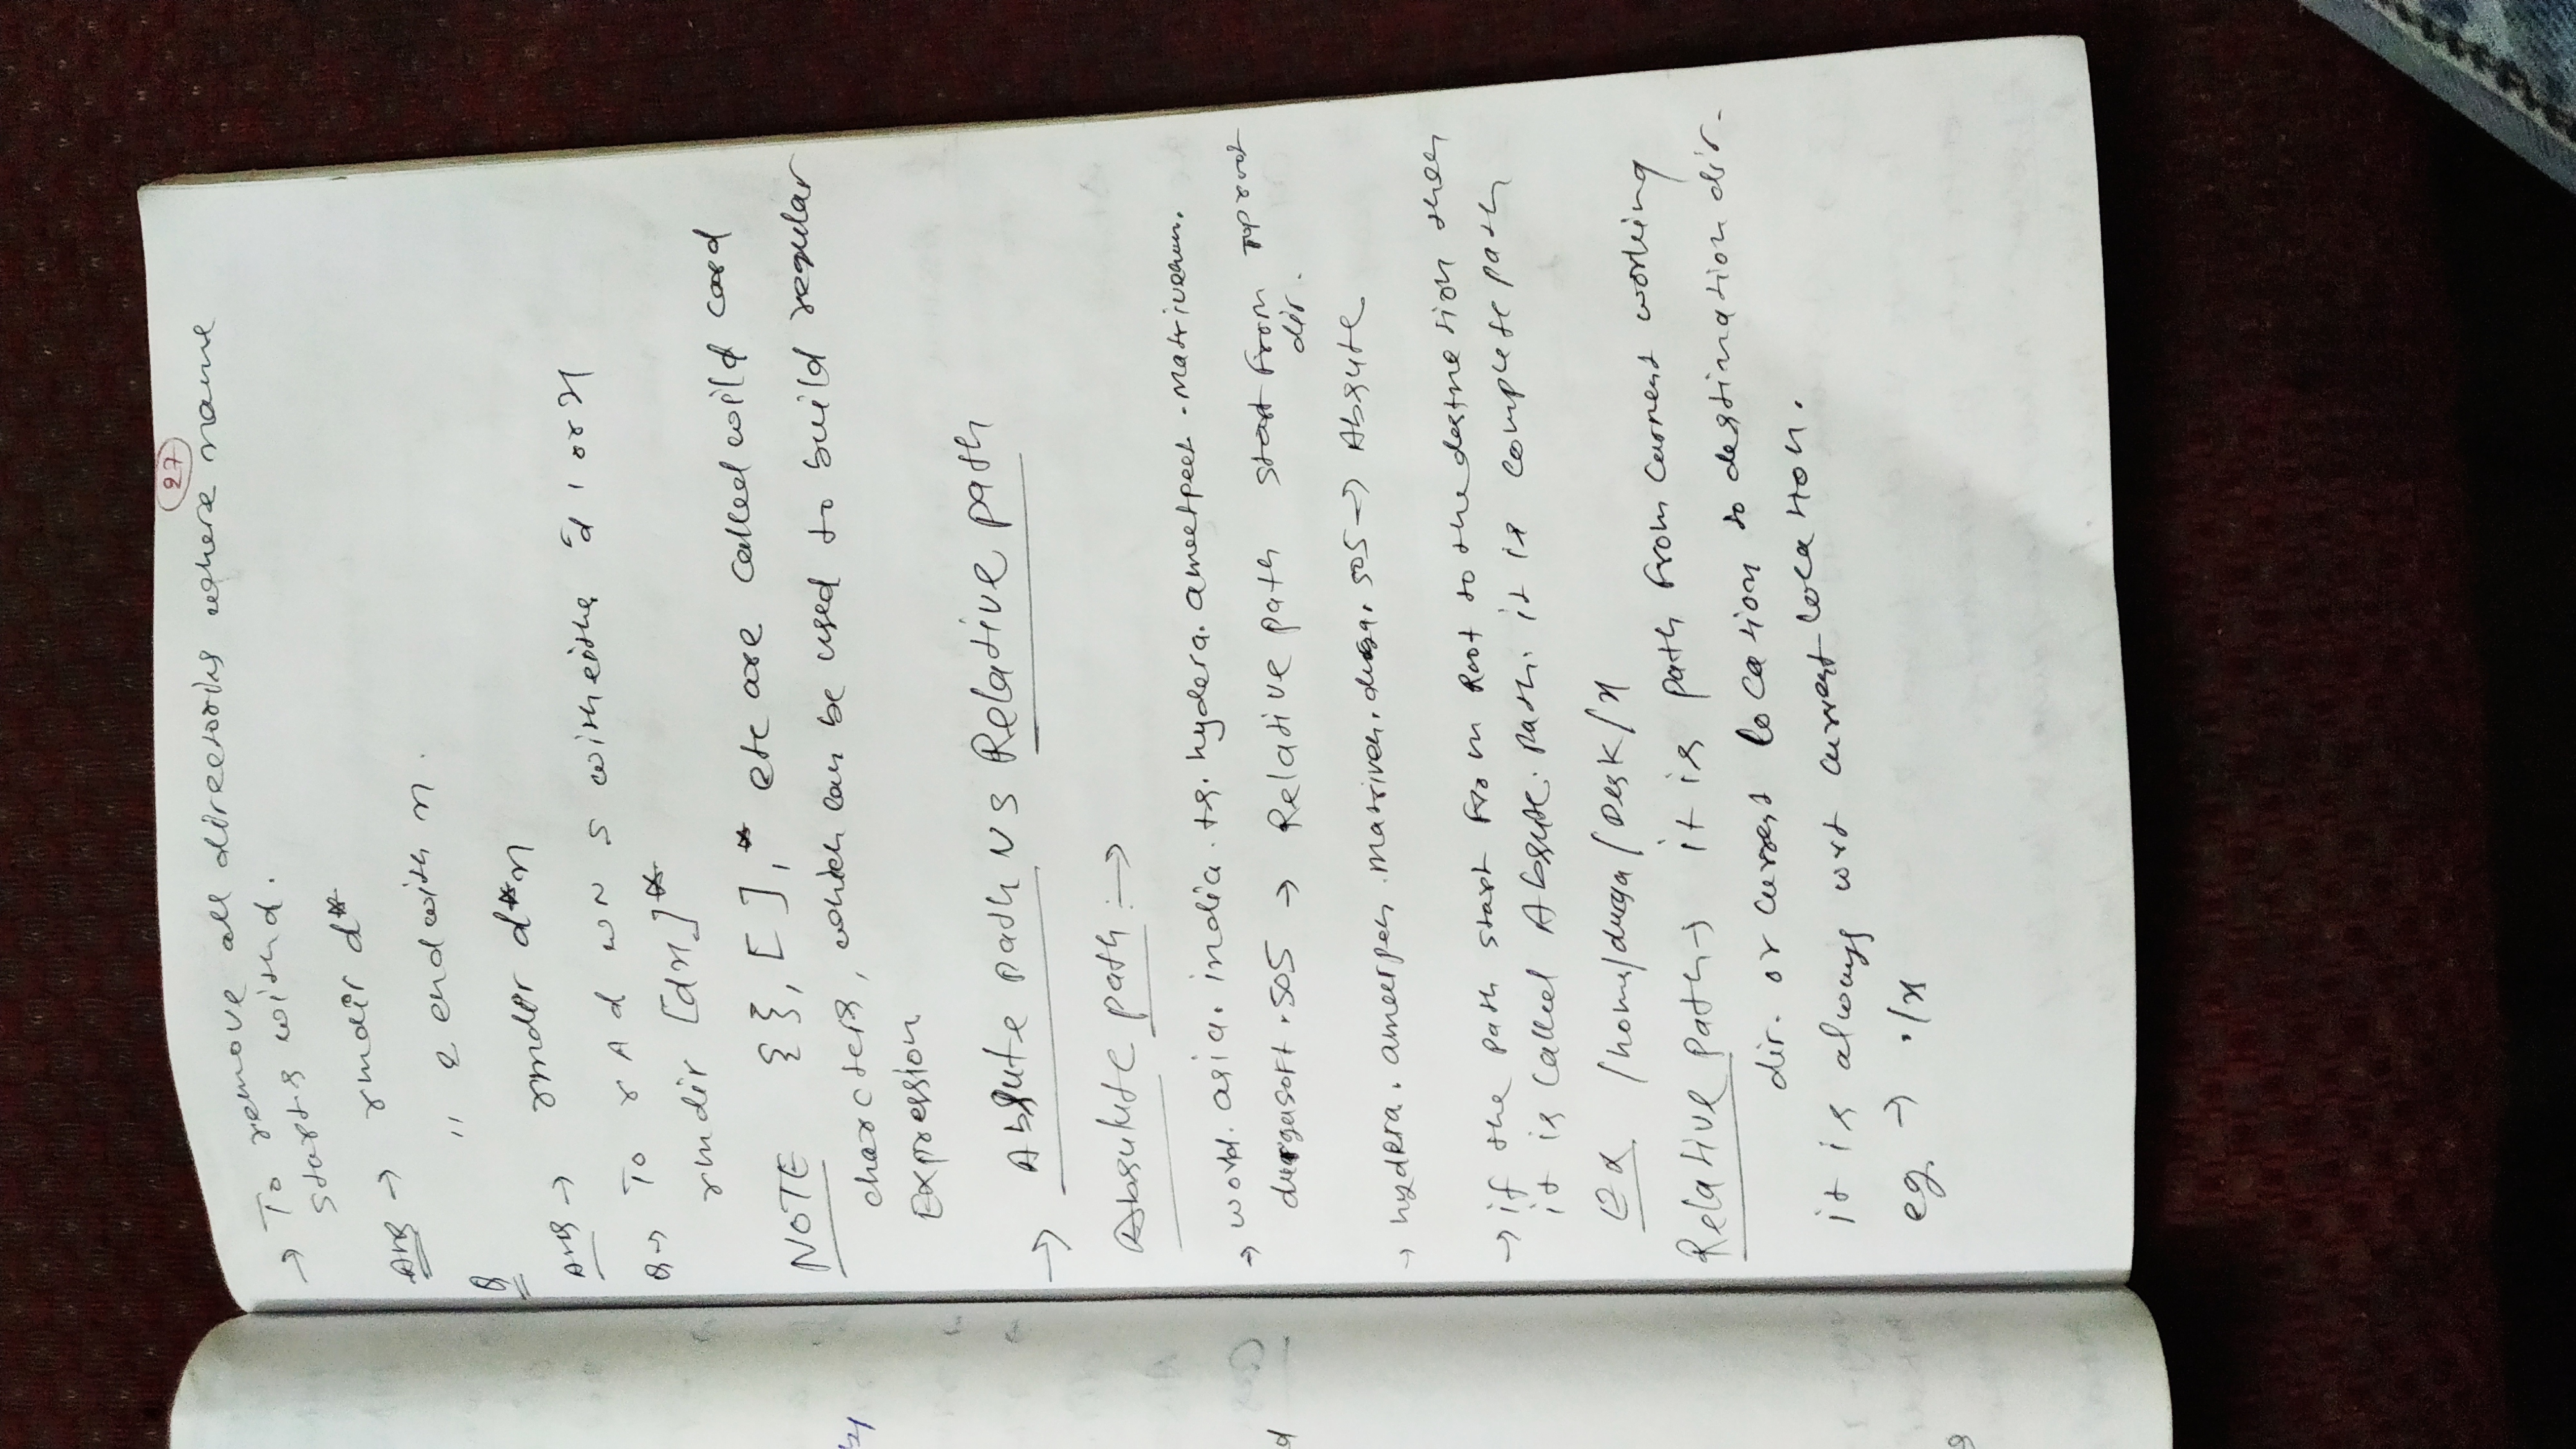 27
→ To remove all directories where name
starts with d.
Ans → rmdir d*
Q " & end with x.
Ans → rmdir d*x
Q → To r A d w N s with either 'd' or x
rmdir [dx]*
NOTE {}, [ ], * etc are called wild card
charcters, which can be used to build regular
Expression
→ Absute path VS Relative path
Absulute path :→
→ world. asia. india. ts. hydera. ameetpeet.
durgasoft. 505 → Relative path start from Top root
dir.
→ hydera. ameerpeu. durga. 505 → Absute
→ if the path start from Root to the destnetion then
it is called Absute. path. it is complete path
Ex /home/durga/Desk/x
Relative path → it is path from current working
dir. or current location to destination dir.
it is always wrt current location.
eg → ./x